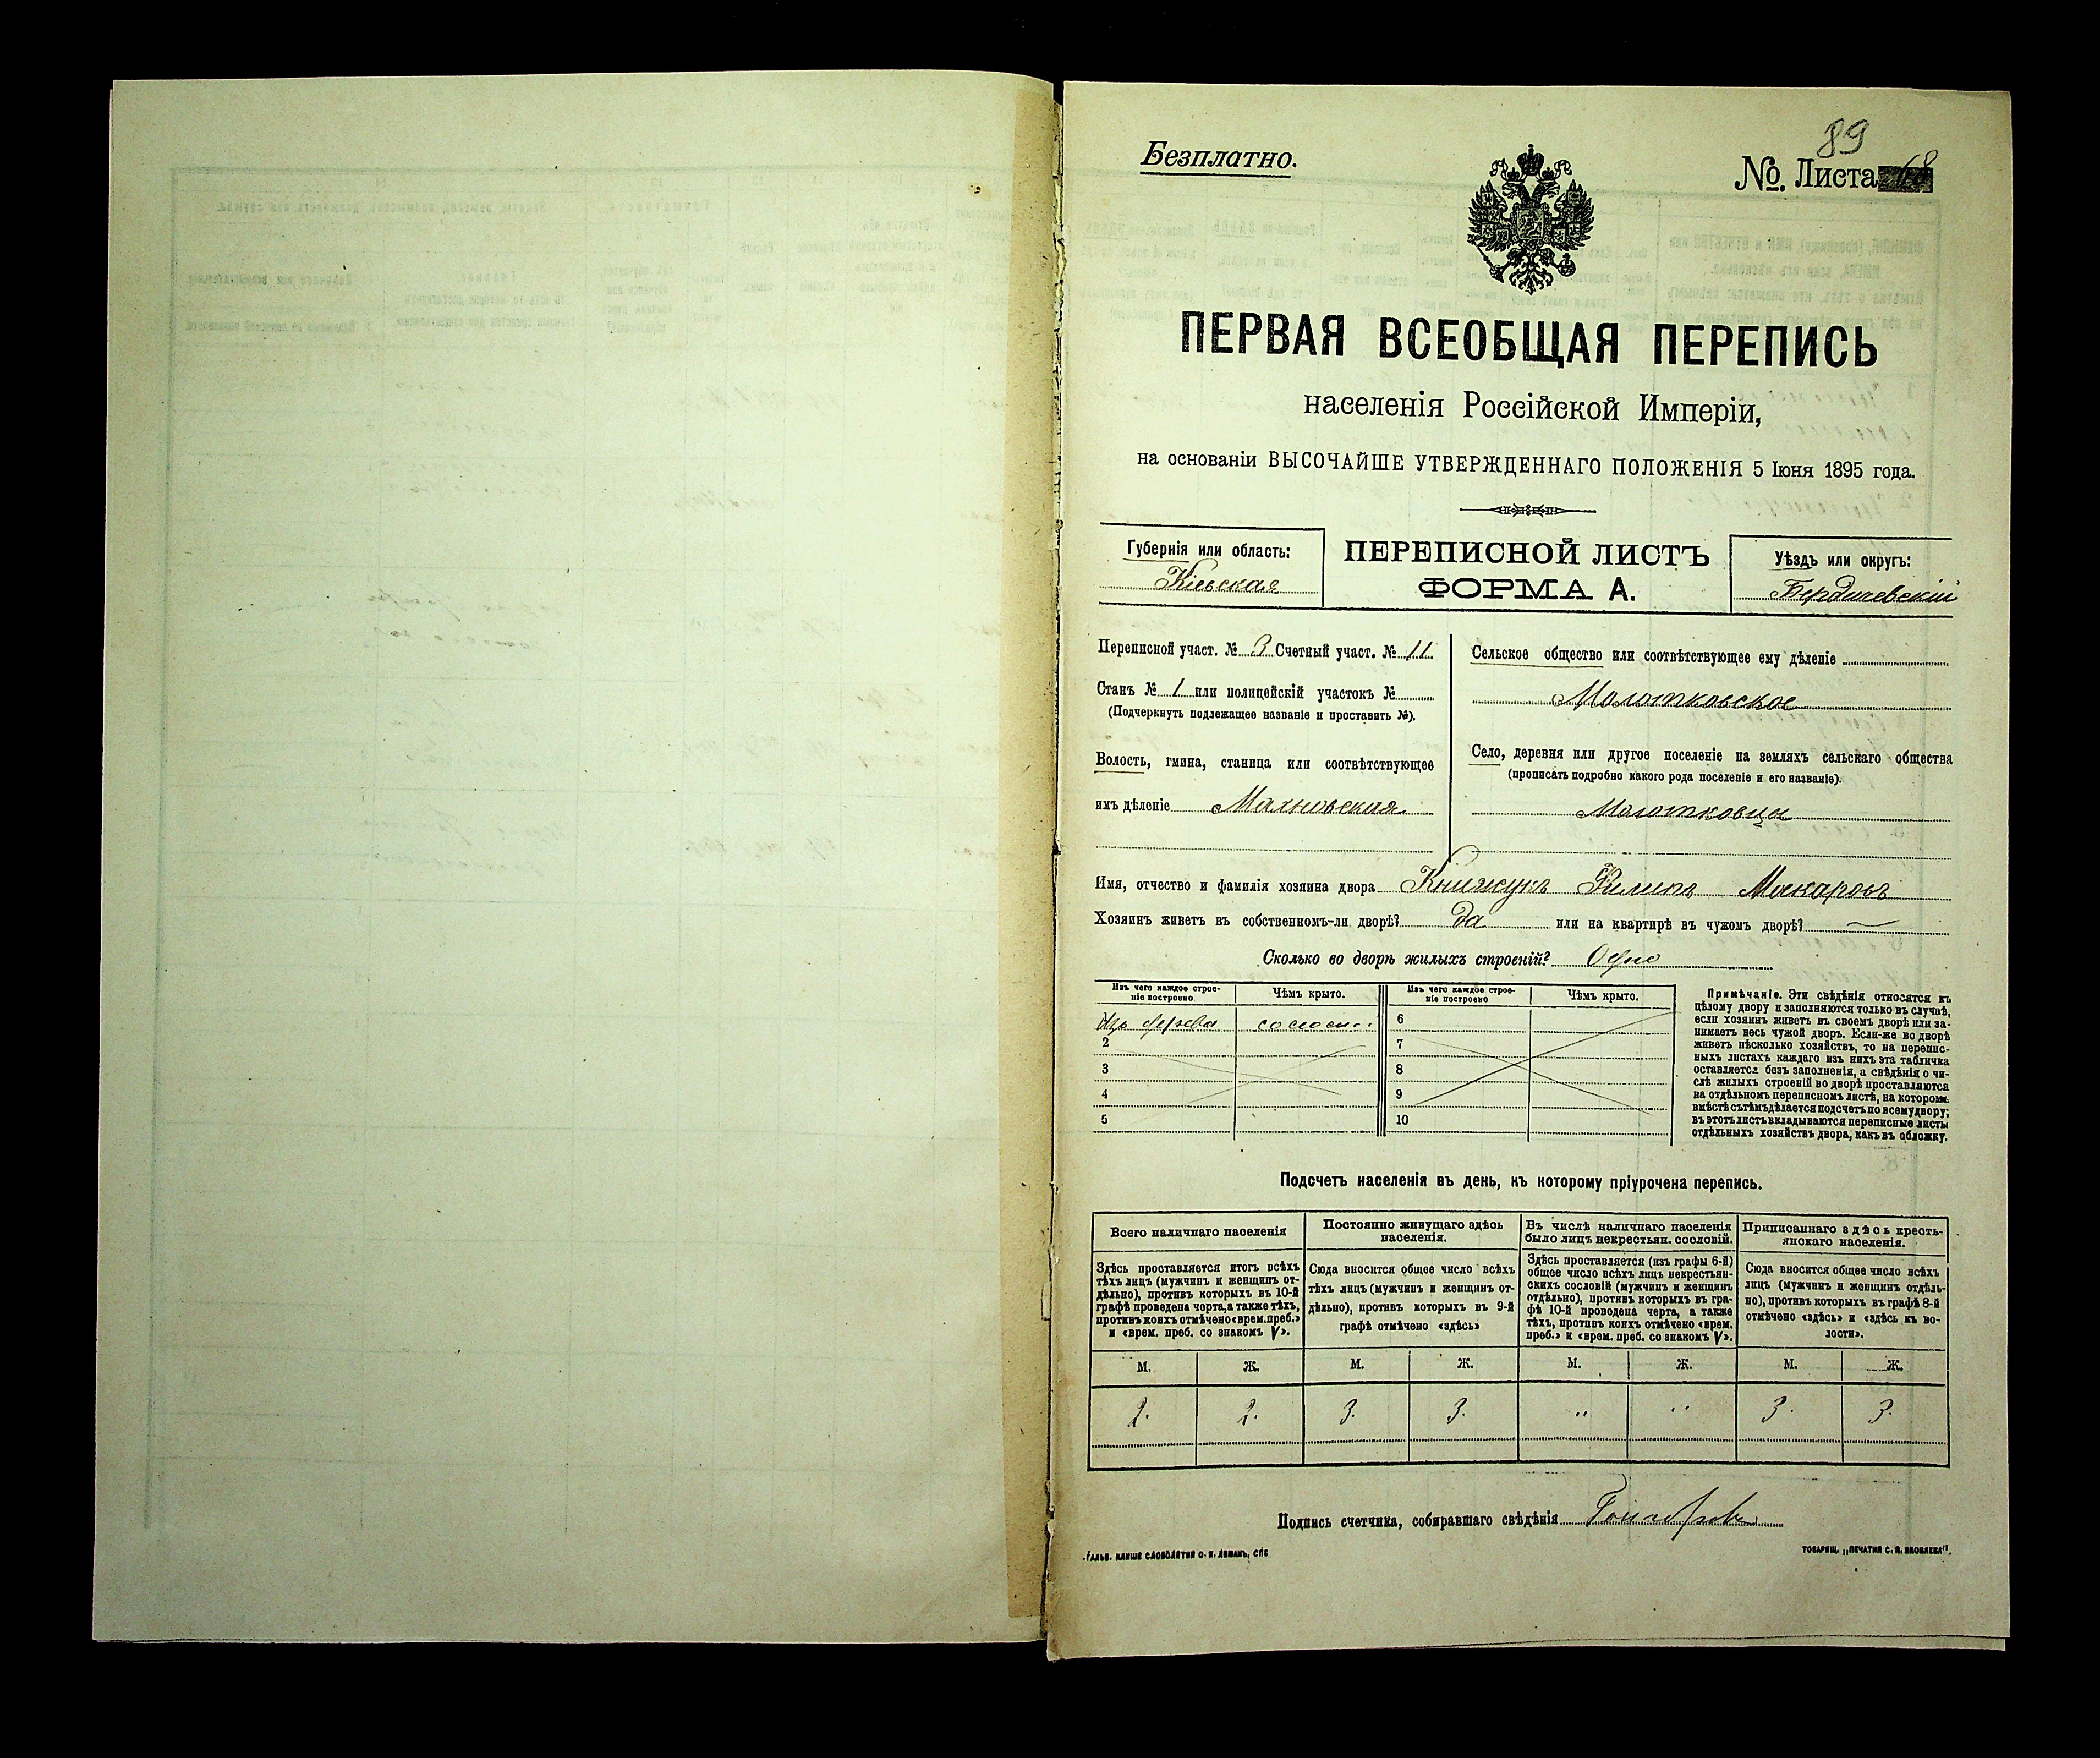 Безплатно.
89
№. Листа 68
ПЕРВАЯ ВСЕОБЩАЯ ПЕРЕПИСЬ
населенія Россійской Имперіи,
на основаніи ВЫСОЧАЙШЕ УТВЕРЖДЕННАГО ПОЛОЖЕНІЯ 5 Іюня 1895 года.
Губернія или область:
Кіевская
ПЕРЕПИСНОЙ ЛИСТЪ
ФОРМА А.
Уѣздъ или округъ:
Бердичевскій
Переписной участ. № 3 Счетный участ. № 11
Станъ № 1 или полицейскій участокъ №
(Подчеркнуть подлежащее названіе и проставить №).
Волость, гмина, станица или соотвѣтствующее
имъ дѣленіе Махновская
Сельское общество или соотвѣтствующее ему дѣленіе
Молотковское
Село, деревня или другое поселеніе на земляхъ сельскаго общества
(прописать подробно какого рода поселеніе и его названіе).
Молотковцы
Имя, отчество и фамилія хозяина двора Книжукъ Филипъ Макаровъ
Хозяинъ живетъ въ собственномъ-ли дворѣ? Да или на квартирѣ въ чужомъ дворѣ? —
Сколько во дворѣ жилыхъ строеній? Одно
Изъ чего каждое строе-
ніе построено
Чѣмъ крыто.
Изъ чего каждое строе-
ніе построено
Чѣмъ крыто.
Изъ дерева соломой 6
2 7
3 8
4 9
5 10
Примѣчаніе. Эти свѣдѣнія относятся къ
цѣлому двору и заполняются только въ случаѣ,
если хозяинъ живетъ въ своемъ дворѣ или за-
нимаетъ весь чужой дворъ. Если-же во дворѣ
живетъ нѣсколько хозяйствъ, то на перепис-
ныхъ листахъ каждаго изъ нихъ эта табличка
оставляется безъ заполненія, а свѣдѣнія о чи-
слѣ жилыхъ строеній во дворѣ проставляются
на отдѣльномъ переписномъ листѣ, на которомъ
вмѣстѣ съ тѣмъ дѣлается подсчетъ по всему двору;
въ этотъ листъ вкладываются переписные листы
отдѣльныхъ хозяйствъ двора, какъ въ обложку.
Подсчетъ населенія въ день, къ которому пріурочена перепись.
Всего наличнаго населенія
Здѣсь проставляется итогъ всѣхъ
тѣхъ лицъ (мужчинъ и женщинъ от-
дѣльно), противъ которыхъ въ 10-й
графѣ проведена черта, а также тѣхъ,
противъ коихъ отмѣчено «врем. преб.»
и «врем. преб. со знакомъ V».
Постоянно живущаго здѣсь
населенія.
Сюда вносится общее число всѣхъ
тѣхъ лицъ (мужчинъ и женщинъ от-
дѣльно), противъ которыхъ въ 9-й
графѣ отмѣчено «здѣсь»
Въ числѣ наличнаго населенія
было лицъ некрестьян. сословій.
Здѣсь проставляется (изъ графы 6-й)
общее число всѣхъ лицъ некрестьян-
скихъ сословій (мужчинъ и женщинъ
отдѣльно), противъ которыхъ въ гра-
фѣ 10-й проведена черта, а также
тѣхъ, противъ коихъ отмѣчено «врем.
преб.» и «врем. преб. со знакомъ V».
Приписаннаго здѣсь кресть-
янскаго населенія.
Сюда вносится общее число всѣхъ
лицъ (мужчинъ и женщинъ отдѣль-
но), противъ которыхъ въ графѣ 8-й
отмѣчено «здѣсь» и «здѣсь къ во-
лости».
М. Ж. М. Ж. М. Ж. М. Ж.
2. 2. 3. 3. " " 3. 3.
Подпись счетчика, собиравшаго свѣдѣнія
ГАЛЬВ. КЛИШЕ СЛОВОЛИТНИ О. И. ЛЕМАНЪ, СПБ
ТОВАРИЩ. „ПЕЧАТНЯ С. П. ЯКОВЛЕВА".